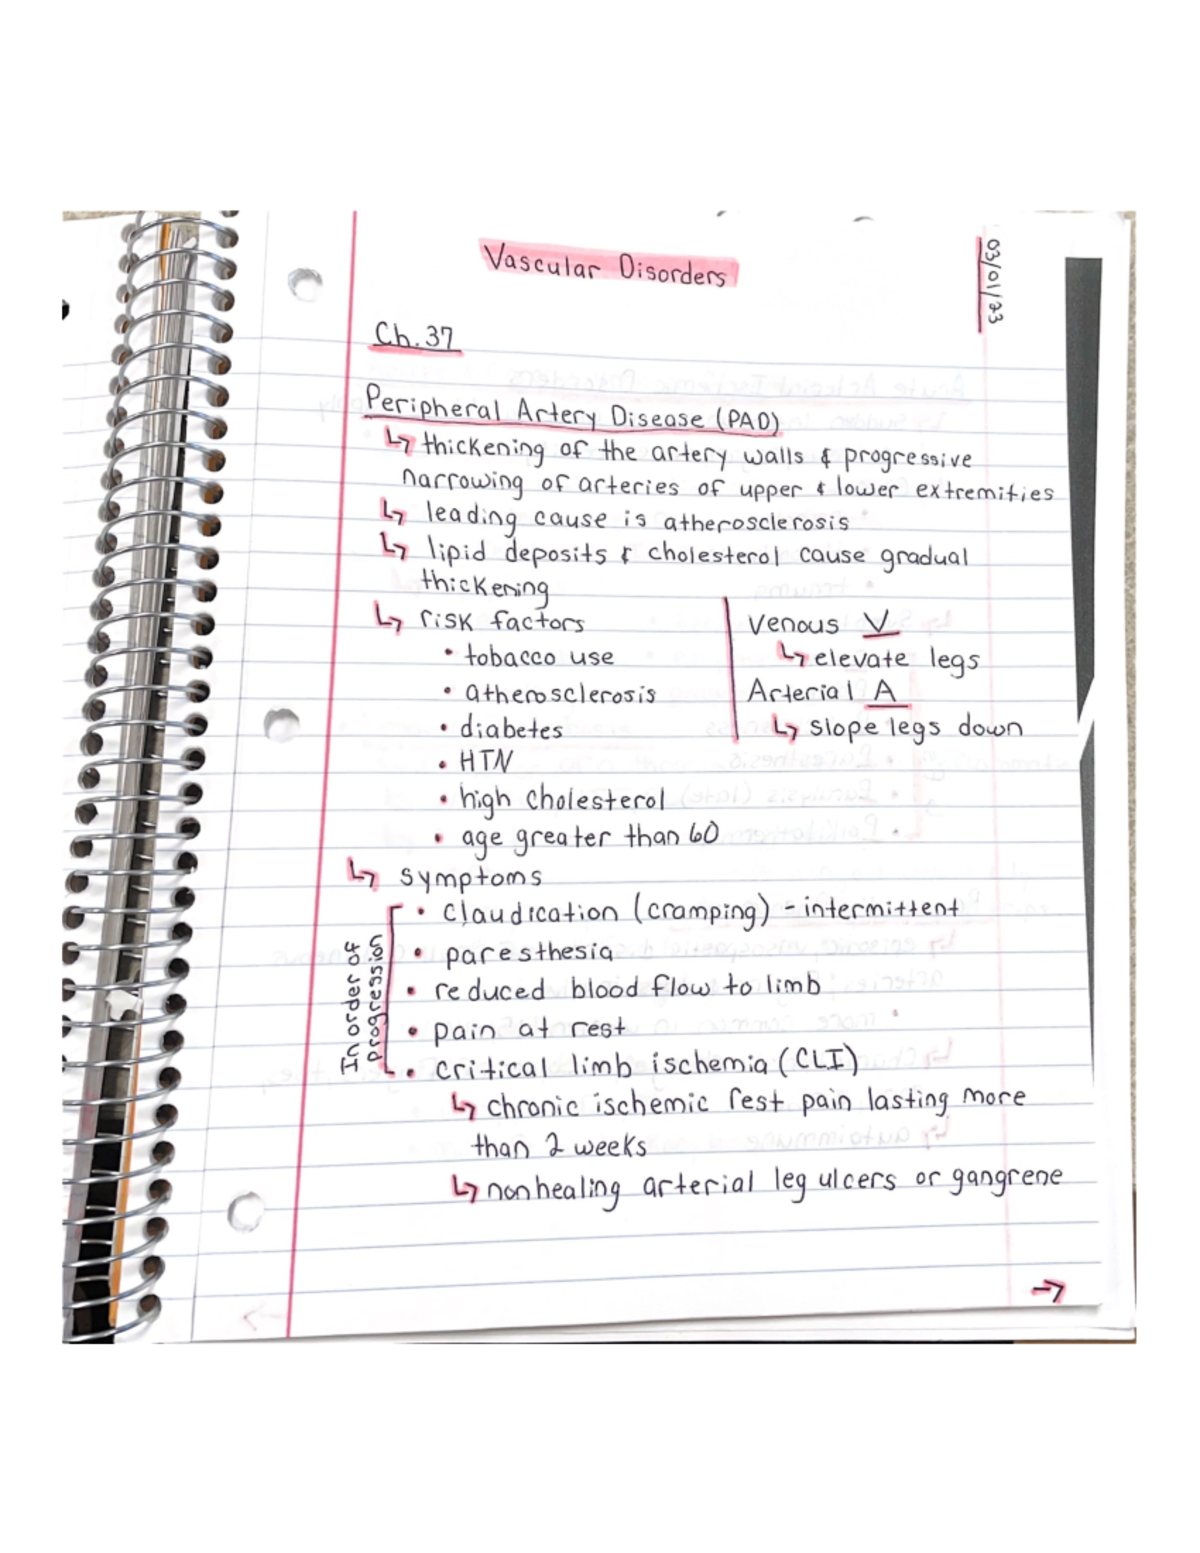 Vascular Disorders
03/01/23
Ch. 37
Peripheral Artery Disease (PAD)
↳ thickening of the artery walls & progressive
narrowing of arteries of upper & lower extremities
↳ leading cause is atherosclerosis
↳ lipid deposits & cholesterol cause gradual
thickening
↳ risk factors
• tobacco use
• atherosclerosis
• diabetes
• HTN
• high cholesterol
• age greater than 60
Venous V
↳ elevate legs
Arterial A
↳ slope legs down
↳ symptoms
In order of
progression
• claudication (cramping) - intermittent
• paresthesia
• reduced blood flow to limb
• pain at rest
• critical limb ischemia (CLI)
↳ chronic ischemic rest pain lasting more
than 2 weeks
↳ nonhealing arterial leg ulcers or gangrene
→